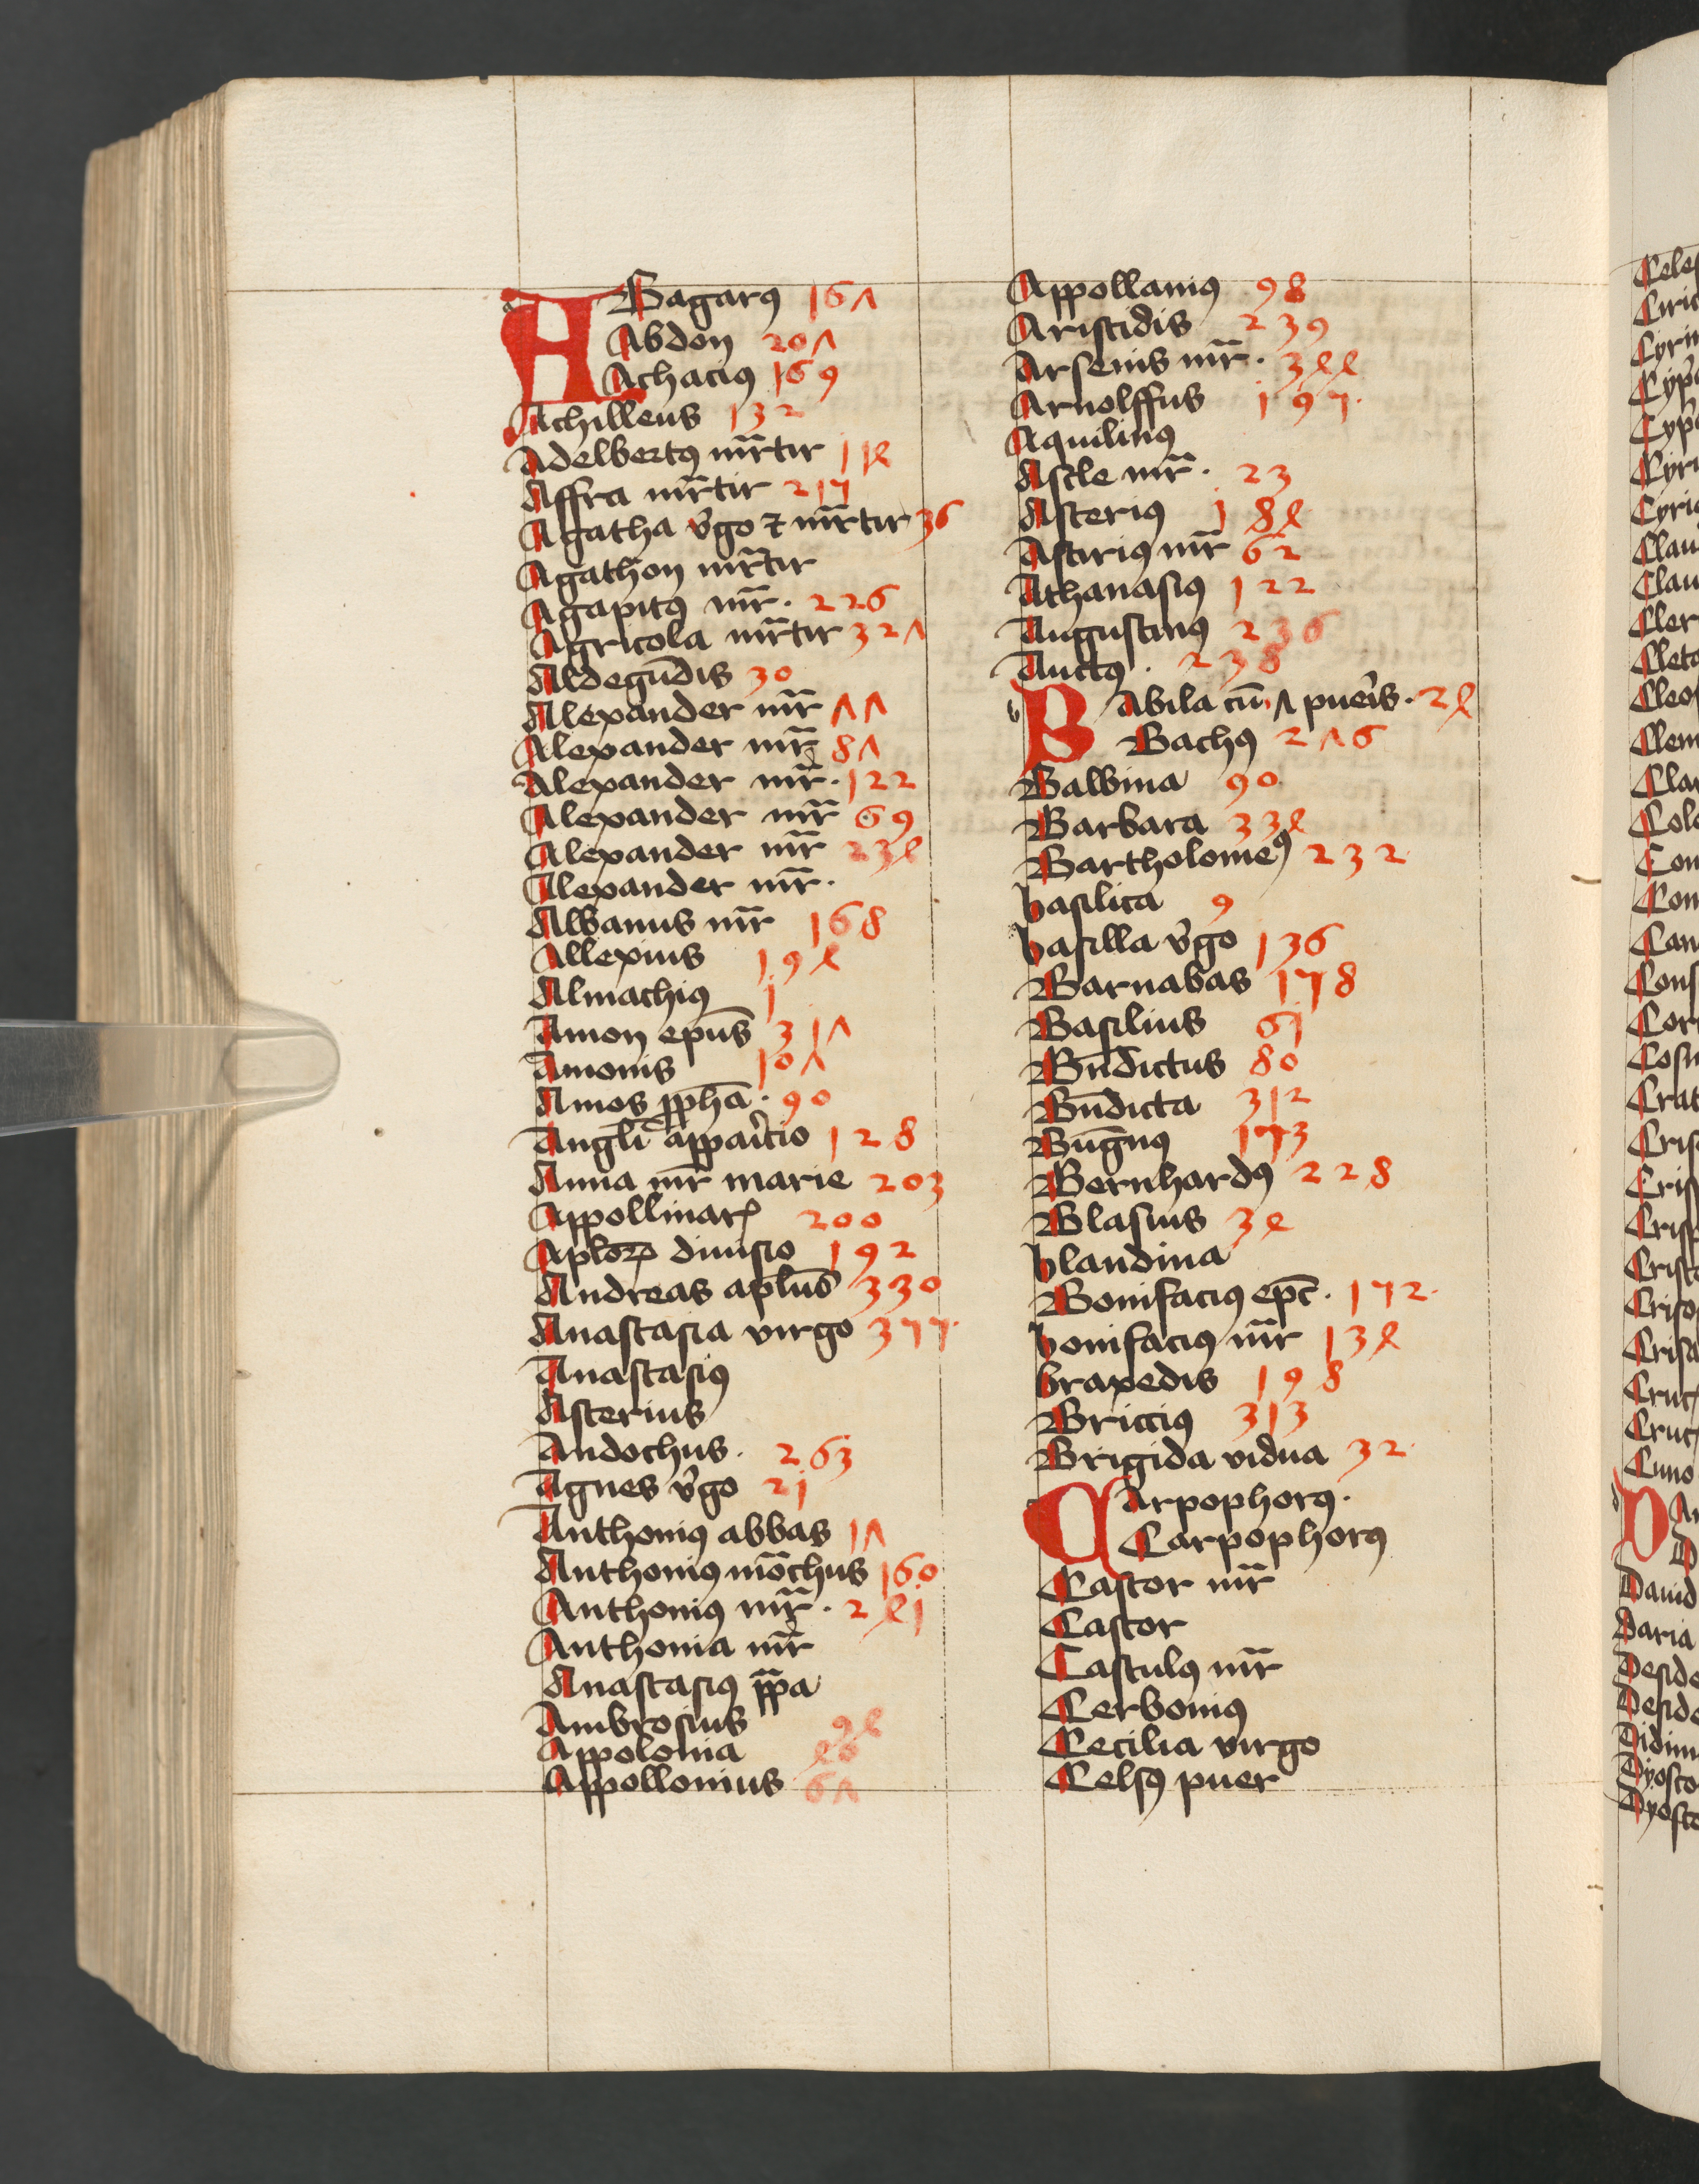 ABagarꝯ 167
Abdon 207
Achaciꝯ 169
Achilleus 132
Adelbertꝯ mr̄tir 114
Affra mr̄tir 215
Agatha v̉go ⁊ mr̄tir 36
Agathon mr̄tir
Agapitꝯ mr̄. 226
Agricola mr̄tir 327
Aldegūdis 30
Alexander mr̄ 77
Alexander mr̄ 87
Alexander mr̄. 122
Alexander mr̄ 69
Alexander mr̄ 234
Alexander mr̄.
Albanus mr̄ 168
Allexius 194
Almachiꝯ 1
Amon ep̄us 317
Amonis 107
Amos ꝓph̄a. 90
Angl̄i appaic̉io 128
Anna mr̄ marie 203
Appollinarꝭ 200
Apl̄oꝝ diuisio 192
Andreas apl̄us 330
Anastasia virgo 355.
Anastasiꝯ
Asterius
Andochus. 263
Agnes v̉go 21
Anthoniꝯ abbas 17
Anthoniꝯ mōchus 160
Anthoniꝯ mr̄. 241
Anthonia mr̄
Anastasiꝯ p̄pa
Ambrosius 94
Appolonia 40
Appollonius 67
Appollaniꝯ 98
Aristidis 239
Arsenis mr̄. 344
Arnolffus 195.
Aquiliniꝯ
Ascle mr̄. 23
Asteriꝯ 184
Astiriꝯ mr̄ 62
Athanasiꝯ 122
Augustinꝯ 236
Auctꝯ. 238
BAbila cū 7 pueis̉. 24
Bachꝯ 276
Balbina 90
Barbara 334
Bartholomeꝯ 232
basilica 9
basilla v̉go 136
Barnabas 158
Basilius 61
Bn̄dictus 80
Bn̄dicta 312
Bn̄ignꝯ 153
Bernhardꝯ 228
Blasius 34
blandina
Bonifaciꝯ ep̄c. 152.
bonifaciꝯ mr̄ 134
braxedis 198
Bricciꝯ 313
Brigida vidua 32
CArpophorꝯ.
Carpophorꝯ
Castor mr̄
Castor
Castulꝯ mr̄
Cerboniꝯ
Cecilia virgo
Celsꝯ puer